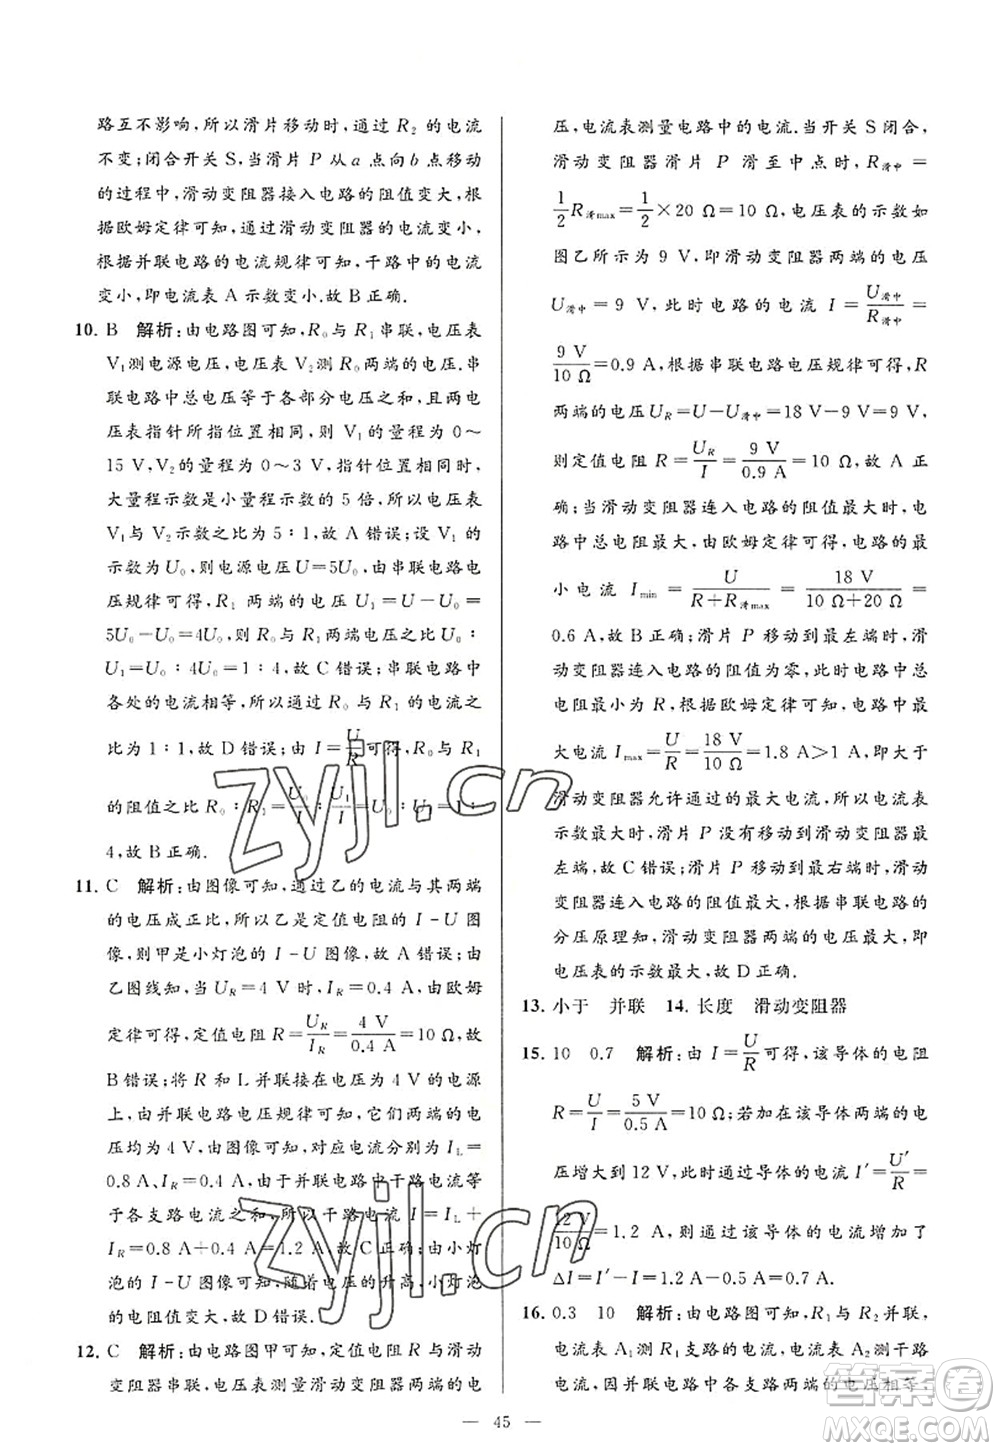 路互不影响,所以滑片移动时,通过 R₂ 的电流
不变;闭合开关 S,当滑片 P 从 a 点向 b 点移动
的过程中,滑动变阻器接入电路的阻值变大,根
据欧姆定律可知,通过滑动变阻器的电流变小,
根据并联电路的电流规律可知,干路中的电流
变小,即电流表 A 示数变小.故 B 正确.
10. B 解析:由电路图可知,R₀与 R₁串联,电压表
V₁测电源电压,电压表 V₂测 R₀两端的电压.串
联电路中总电压等于各部分电压之和,且两电
压表指针所指位置相同,则 V₁ 的量程为 0～
15 V,V₂的量程为 0～3 V,指针位置相同时,
大量程示数是小量程示数的 5 倍,所以电压表
V₁与 V₂示数之比为 5∶1,故 A 错误;设 V₁ 的
示数为 U₀,则电源电压 U=5U₀,由串联电路电
压规律可得,R₁ 两端的电压 U₁=U-U₀=
5U₀-U₀=4U₀,则 R₀与 R₁两端电压之比 U₀∶
U₁=U₀∶4U₀=1∶4,故 C 错误;串联电路中
各处的电流相等,所以通过 R₀ 与 R₁ 的电流之
比为 1∶1,故 D 错误;由 I=U/R可得,R₀与 R₁
的阻值之比 R₀∶R₁=U₀/I∶U₁/I=U₀∶U₁=1∶
4,故 B 正确.
11. C 解析:由图像可知,通过乙的电流与其两端
的电压成正比,所以乙是定值电阻的 I-U 图
像,则甲是小灯泡的 I-U 图像,故 A 错误;由
乙图线知,当 U_R=4 V 时,I_R=0.4 A,由欧姆
定律可得,定值电阻 R=U_R/I_R=4 V/0.4 A=10 Ω,故
B 错误;将 R 和 L 并联在电压为 4 V 的电源
上,由并联电路电压规律可知,它们两端的电
压均为 4 V,由图像可知,对应电流分别为 I_L=
0.8 A、I_R=0.4 A,由于并联电路中干路电流等
于各支路电流之和,所以干路电流 I=I_L+
I_R=0.8 A+0.4 A=1.2 A,故 C 正确;由小灯
泡的 I-U 图像可知,随着电压的升高,小灯泡
的电阻值变大,故 D 错误.
12. C 解析:由电路图甲可知,定值电阻 R 与滑动
变阻器串联,电压表测量滑动变阻器两端的电
压,电流表测量电路中的电流.当开关 S 闭合,
滑动变阻器滑片 P 滑至中点时,R滑中=
1/2R滑max=1/2×20 Ω=10 Ω,电压表的示数如
图乙所示为 9 V,可知滑动变阻器两端的电压
U滑中=9 V,此时电路的电流 I=U滑中/R滑中=
9 V/10 Ω=0.9 A,根据串联电路电压规律可得,R
两端的电压 U_R=U-U滑中=18 V-9 V=9 V,
则定值电阻 R=U_R/I=9 V/0.9 A=10 Ω,故 A 正
确;当滑动变阻器连入电路的电阻最大时,电
路中总电阻最大,由欧姆定律可得,电路的最
小电流 Imin=U/(R+R滑max)=18 V/(10 Ω+20 Ω)=
0.6 A,故 B 正确;滑片 P 移动到最左端时,滑
动变阻器连入电路的阻值为零,此时电路中总
电阻最小为 R,根据欧姆定律可得,电路中最
大电流 Imax=U/R=18 V/10 Ω=1.8 A>1 A,即大于
滑动变阻器允许通过的最大电流,所以电流表
示数最大时,滑片 P 没有移动到滑动变阻器的
最左端,故 C 错误;滑片 P 移动到最右端时,滑动
变阻器连入电路的阻值最大,根据串联电路的
分压原理知,滑动变阻器两端的电压最大,即
电压表的示数最大,故 D 正确.
13. 小于 并联 14. 长度 滑动变阻器
15. 10 0.7 解析:由 I=U/R可得,该导体的电阻
R=U/I=5 V/0.5 A=10 Ω;若加在该导体两端的电
压增大到 12 V,此时通过导体的电流 I′=U′/R=
12 V/10 Ω=1.2 A,则通过该导体的电流增加了
ΔI=I′-I=1.2 A-0.5 A=0.7 A.
16. 0.3 10 解析:由电路图可知,R₁与 R₂并联,
电流表 A₁测 R₁支路的电流,电流表 A₂测干路
电流,因并联电路中各支路两端的电压相等,
— 45 —
zyjl.cn
zyjl.cn
答案圈
MXQE.COM